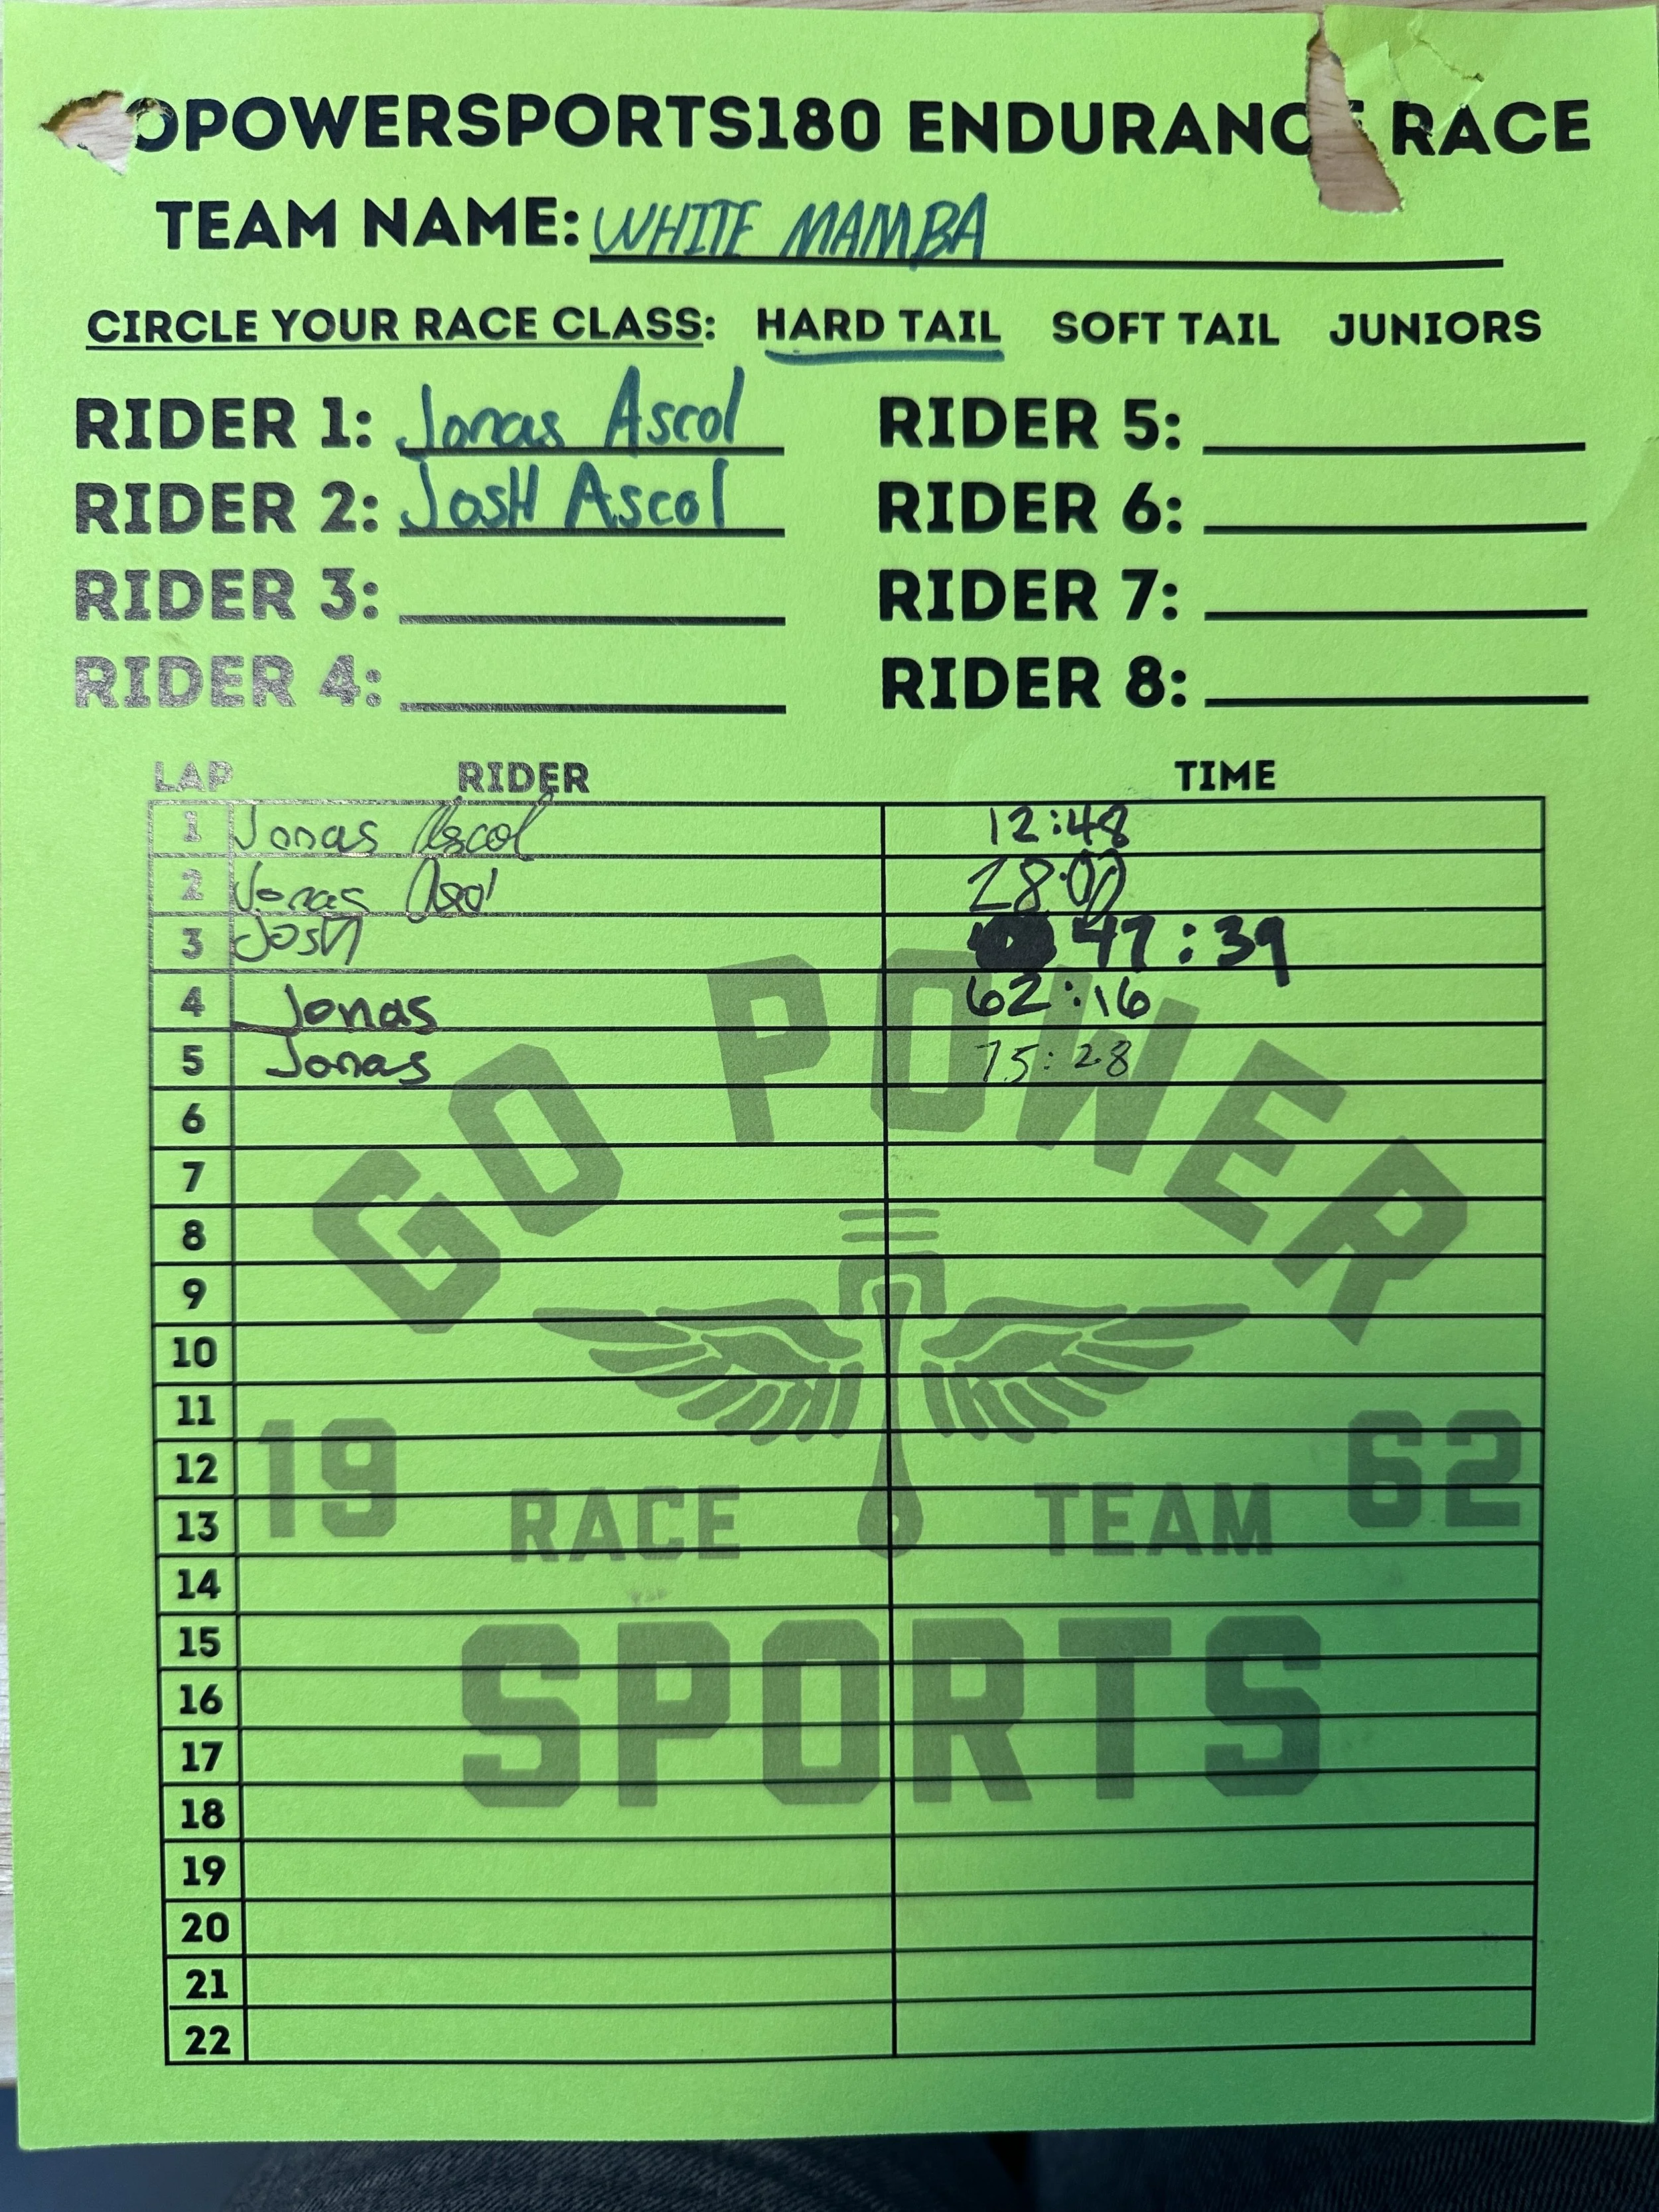 OPOWERSPORTS180 ENDURANCE RACE
TEAM NAME: WHITE MAMBA
CIRCLE YOUR RACE CLASS: HARD TAIL SOFT TAIL JUNIORS
RIDER 1: Jonas Ascol RIDER 5:
RIDER 2: JosH Ascol RIDER 6:
RIDER 3: RIDER 7:
RIDER 4: RIDER 8:
LAP RIDER TIME
1 Jonas Ascol 12:48
2 Jonas Ascol 28:00
3 JosH 47:39
4 Jonas 62:16
5 Jonas 75:28
6
7
8
9
10
11
12
13
14
15
16
17
18
19
20
21
22
GO POWER
19 62
RACE TEAM
SPORTS